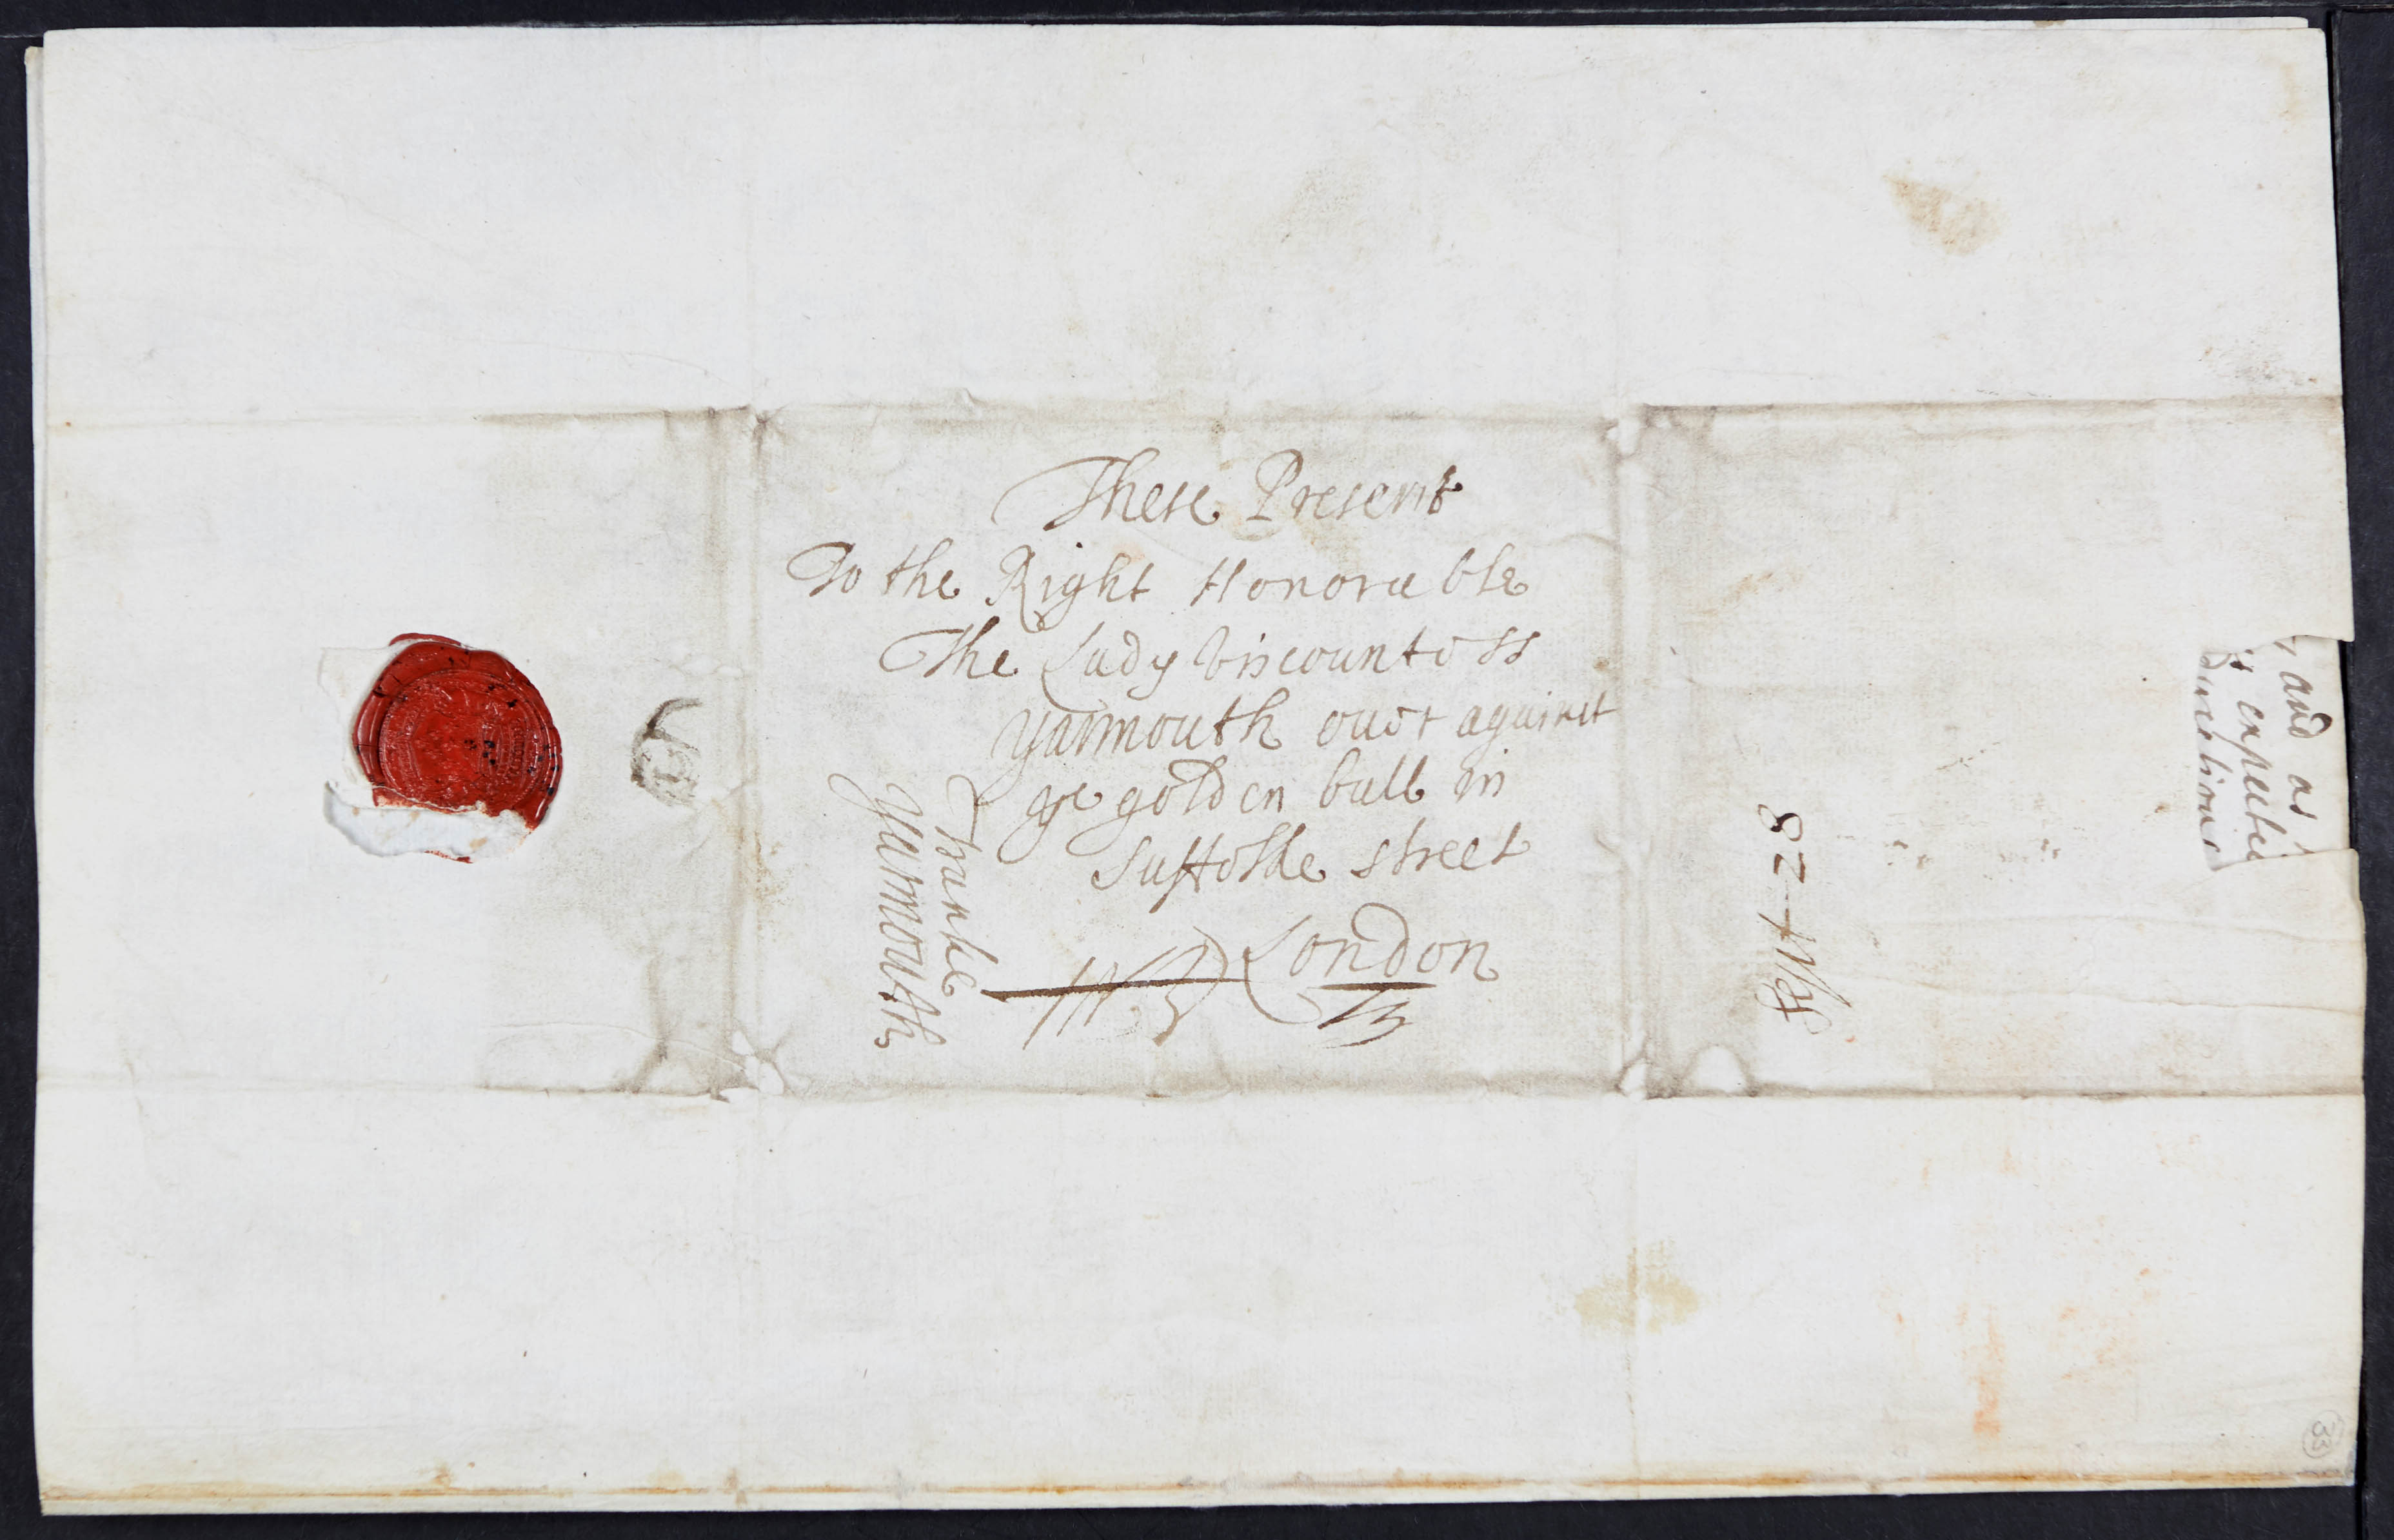 These Present
To the Right Honorable
The Lady Viscountess
yarmouth over against
ye golden ball in
Suffolke street
London
franke
Yarmouth
Sept 28
and as
expecte
33